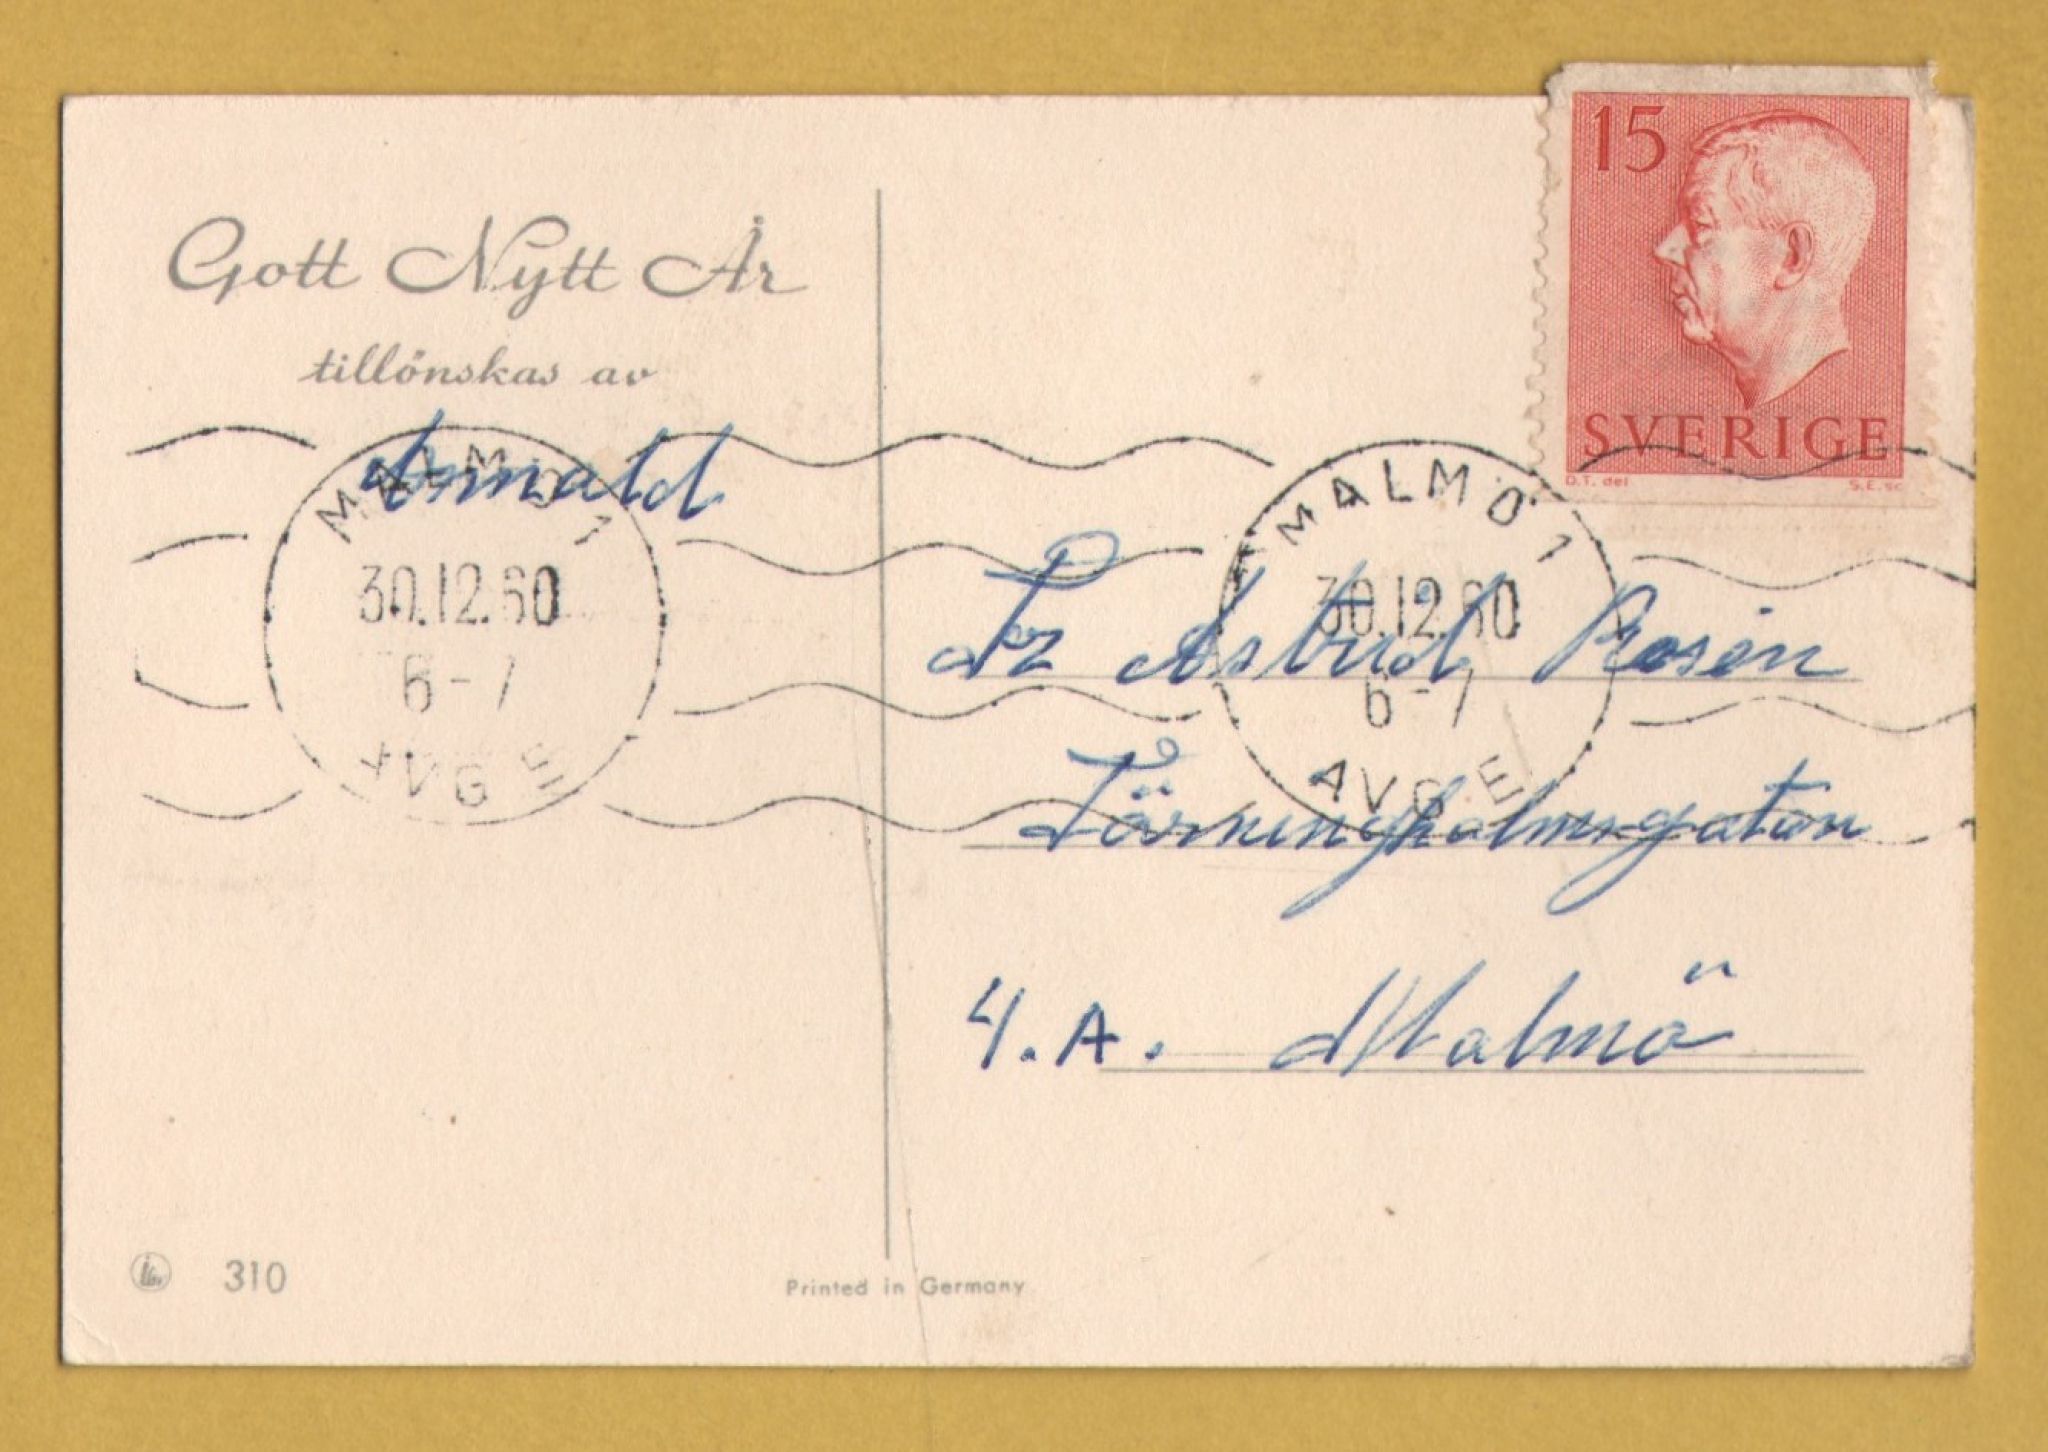 Gott Nytt År
tillönskas av
Arnald
15
SVERIGE
D.T. del
S.E. sc
MALMÖ 1
30.12.60
6-7
AVG E
MALMÖ 1
30.12.60
6-7
AVG E
Fr Astrid Rosén
Törningholmsgatan
4.A. Malmö
310
Printed in Germany